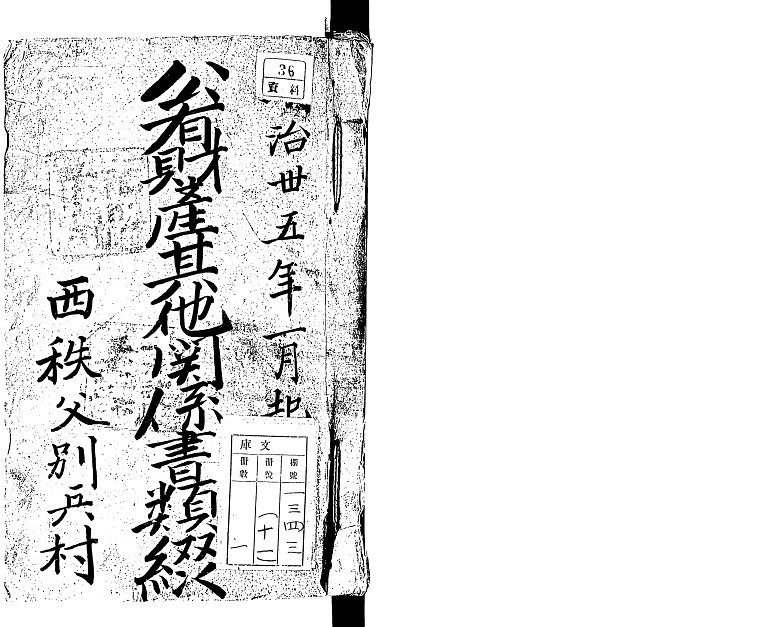 36
資料
治丗五年一月起
公有財產其他関係書類綴
西秩父別兵村
文庫
棚號
一三四三
冊號
(十一)
冊數
一